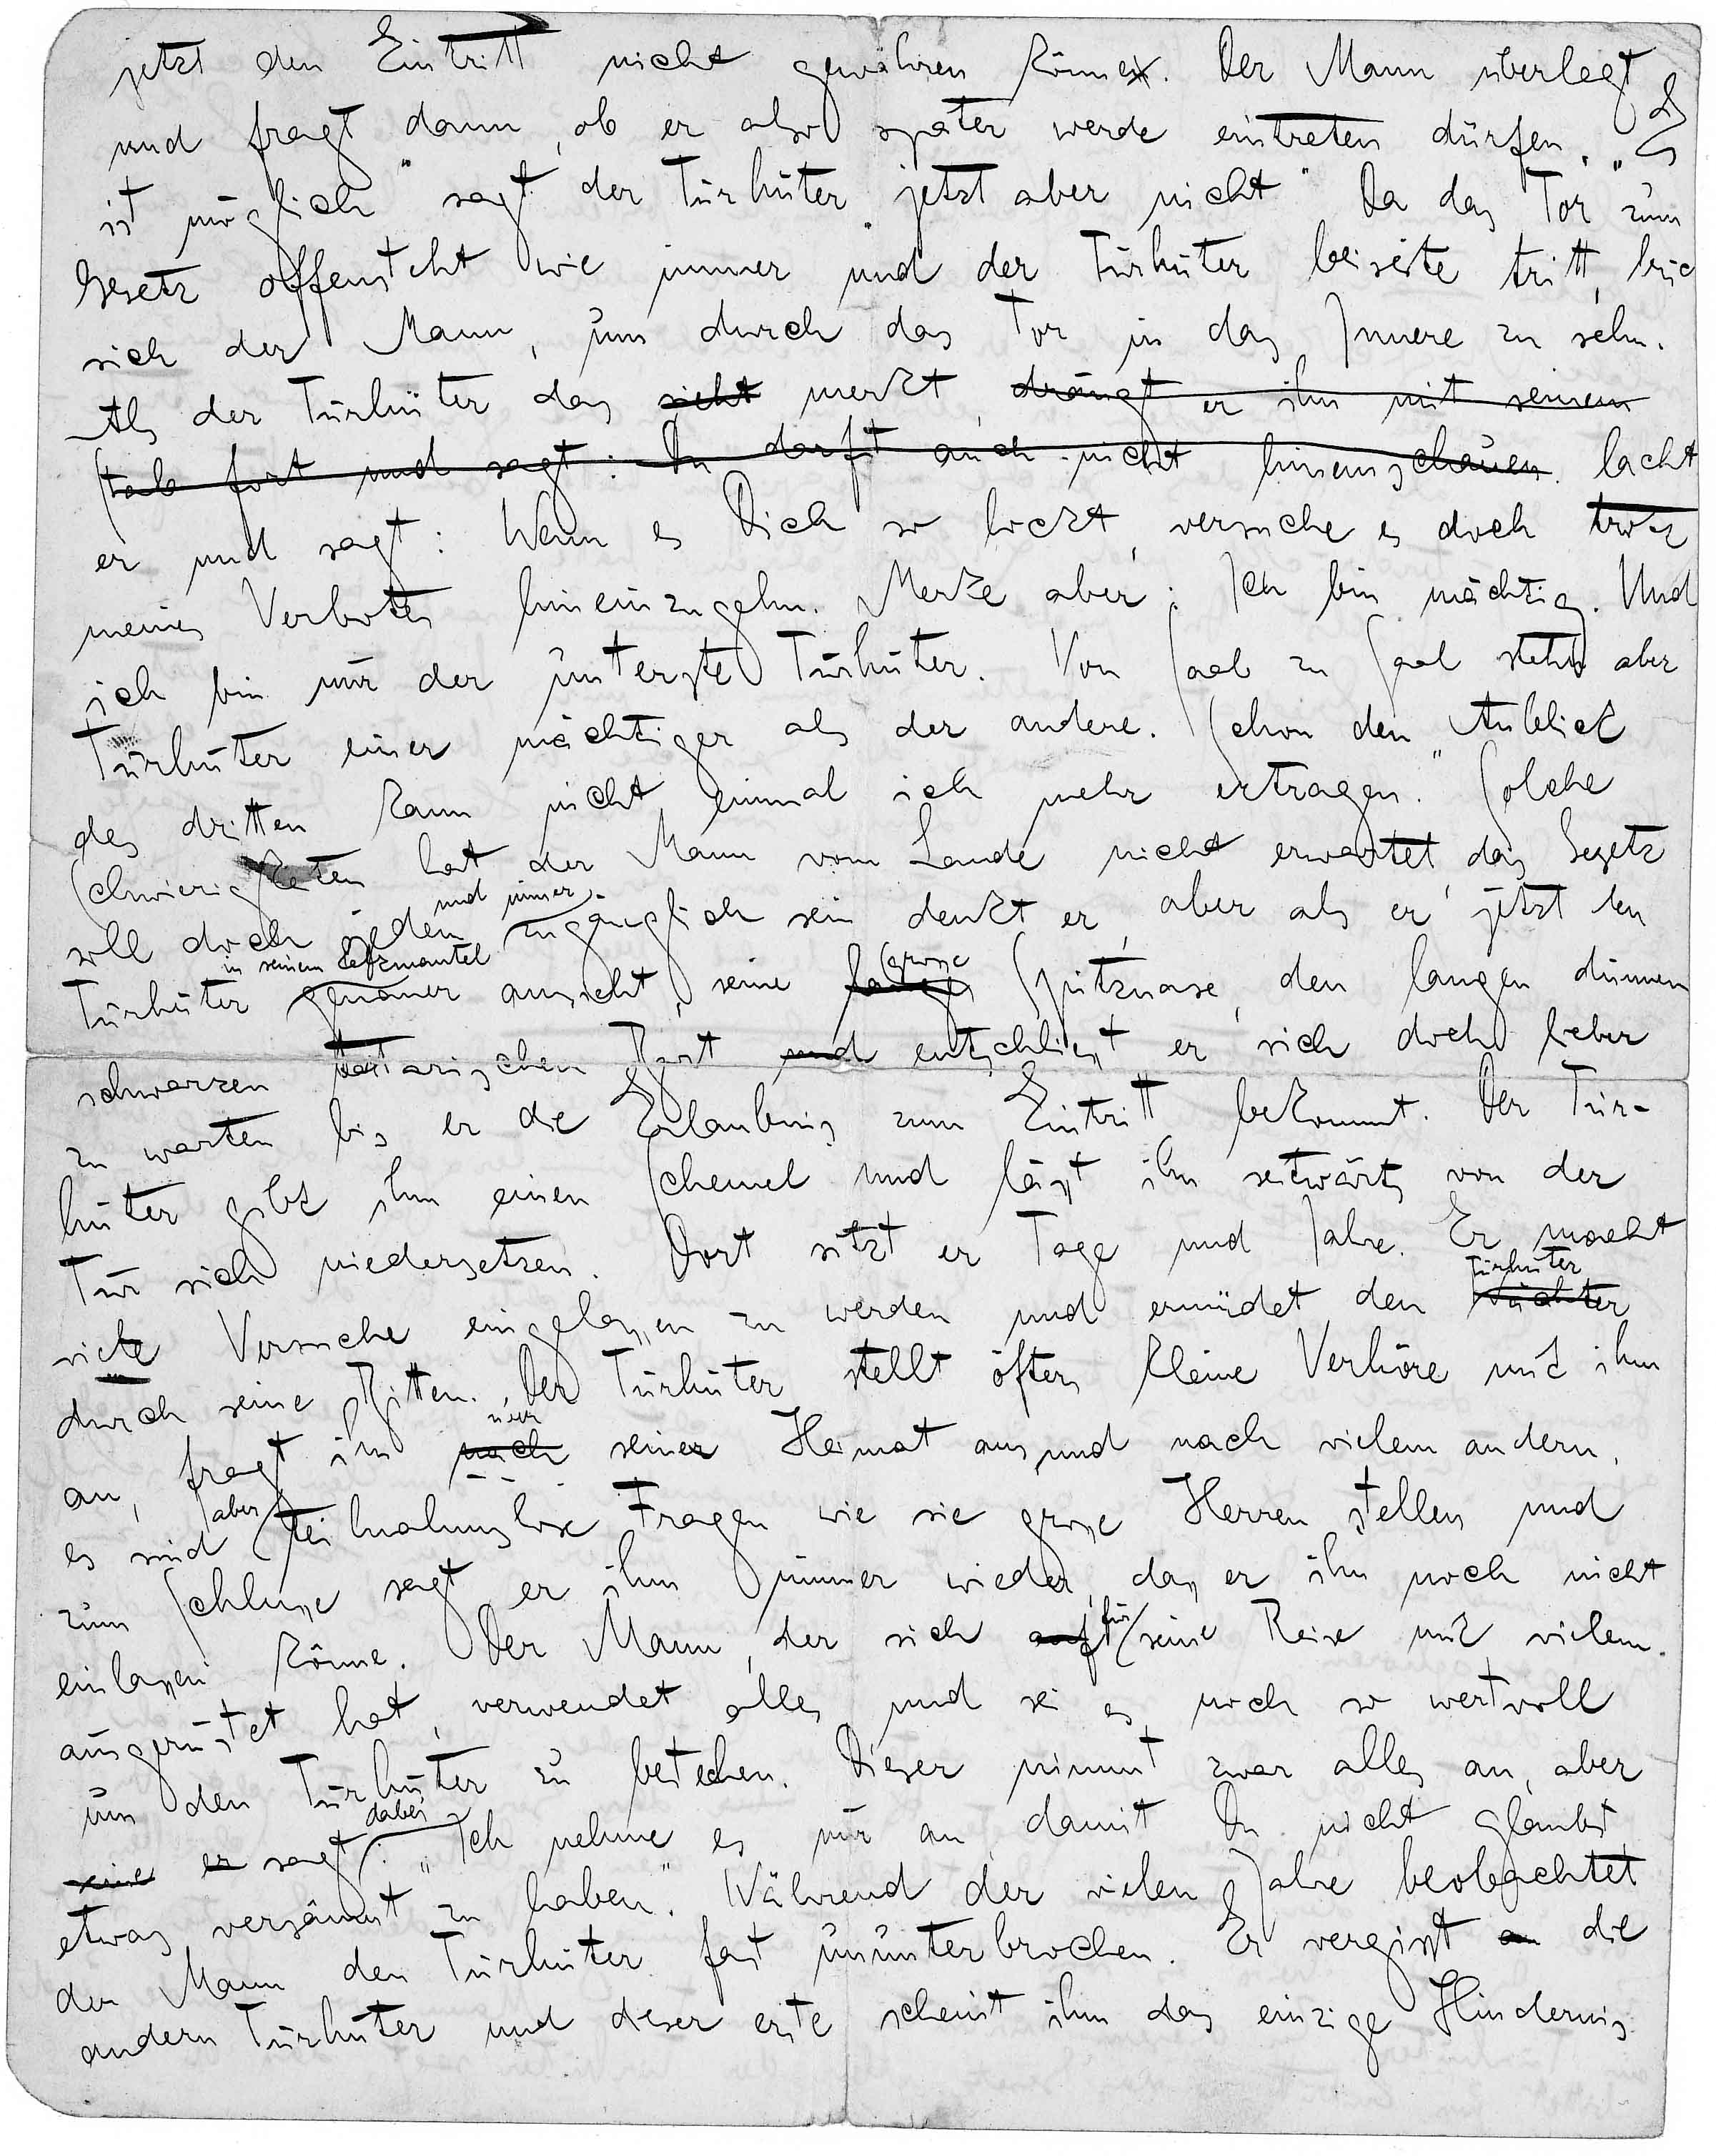 jetzt den Eintritt nicht gewähren könne. Der Mann überlegt
und fragt dann, ob er also später werde eintreten dürfen. „Es
ist möglich" sagt der Türhüter „jetzt aber nicht" Da das Tor zum
Gesetz offensteht wie immer und der Türhüter beiseite tritt, bückt
sich der Mann, um durch das Tor in das Innere zu sehn.
Als der Türhüter das sieht merkt, drängt er ihn mit seinem
Stab fort und sagt: Du darfst auch nicht hineinschauen. lacht
er und sagt: Wenn es Dich so lockt, versuche es doch trotz
meines Verbotes hineinzugehn. Merke aber: Ich bin mächtig. Und
ich bin nur der unterste Türhüter. Von Saal zu Saal stehn aber
Türhüter einer mächtiger als der andere. Schon den Anblick
des dritten kann nicht einmal ich mehr ertragen." Solche
Schwierigkeiten hat der Mann vom Lande nicht erwartet, das Gesetz
soll doch jedem und immer zugänglich sein denkt er, aber als er jetzt den
Türhüter in seinem Pelzmantel genauer ansieht, seine große Spitznase, den langen dünnen
schwarzen tartarischen Bart und entschließt er sich doch lieber
zu warten bis er die Erlaubnis zum Eintritt bekommt. Der Tür-
hüter gibt ihm einen Schemel und läßt ihn seitwärts von der
Tür sich niedersetzen. Dort sitzt er Tage und Jahre. Er macht
viele Versuche eingelassen zu werden und ermüdet den Wächter Türhüter
durch seine Bitten. Der Türhüter stellt öfters kleine Verhöre mit ihm
an, fragt ihn nach über seiner Heimat aus und nach vielem andern,
es sind aber teilnahmslose Fragen wie sie große Herren stellen und
zum Schlusse sagt er ihm immer wieder, daß er ihn noch nicht
einlassen könne. Der Mann, der sich auf für seine Reise mit vielem
ausgerüstet hat, verwendet alles und sei es noch so wertvoll
um den Türhüter zu bestechen. Dieser nimmt zwar alles an, aber
er sagt dabei: „Ich nehme es nur an, damit Du nicht glaubst
etwas versäumt zu haben". Während der vielen Jahre beobachtet
der Mann den Türhüter fast ununterbrochen. Er vergißt an die
andern Türhüter und dieser erste scheint ihm das einzige Hindernis